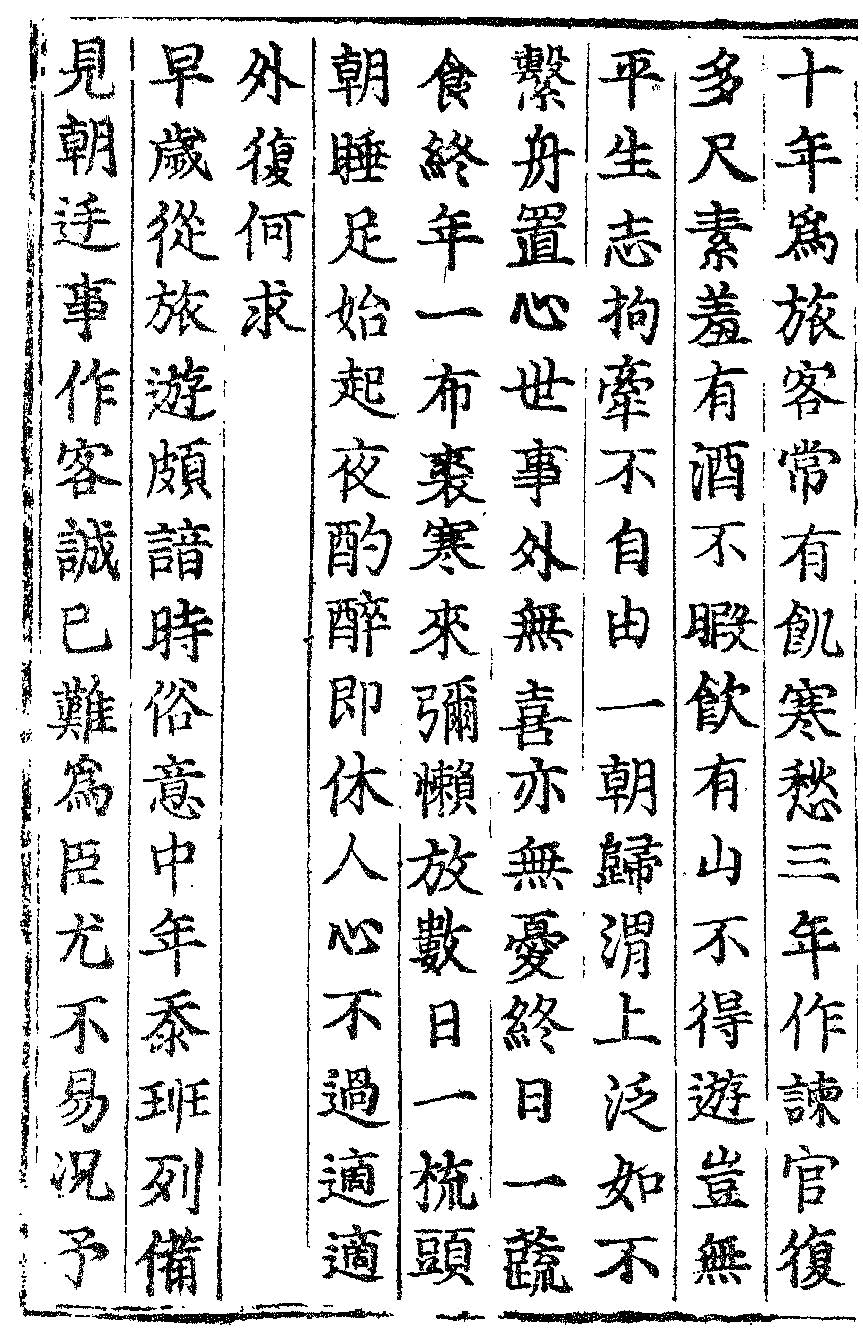 十年爲旅客常有飢寒愁三年作諫官復
多尺素羞有酒不暇飲有山不得遊豈無
平生志拘牽不自由一朝歸渭上泛如不
繫舟置心世事外無喜亦無憂終日一蔬
食終年一布裘寒來彌懶放數日一梳頭
朝睡足始起夜酌醉即休人心不過適適
外復何求
早歲從旅遊頗諳時俗意中年忝班列備
見朝廷事作客誠已難爲臣尤不易况予